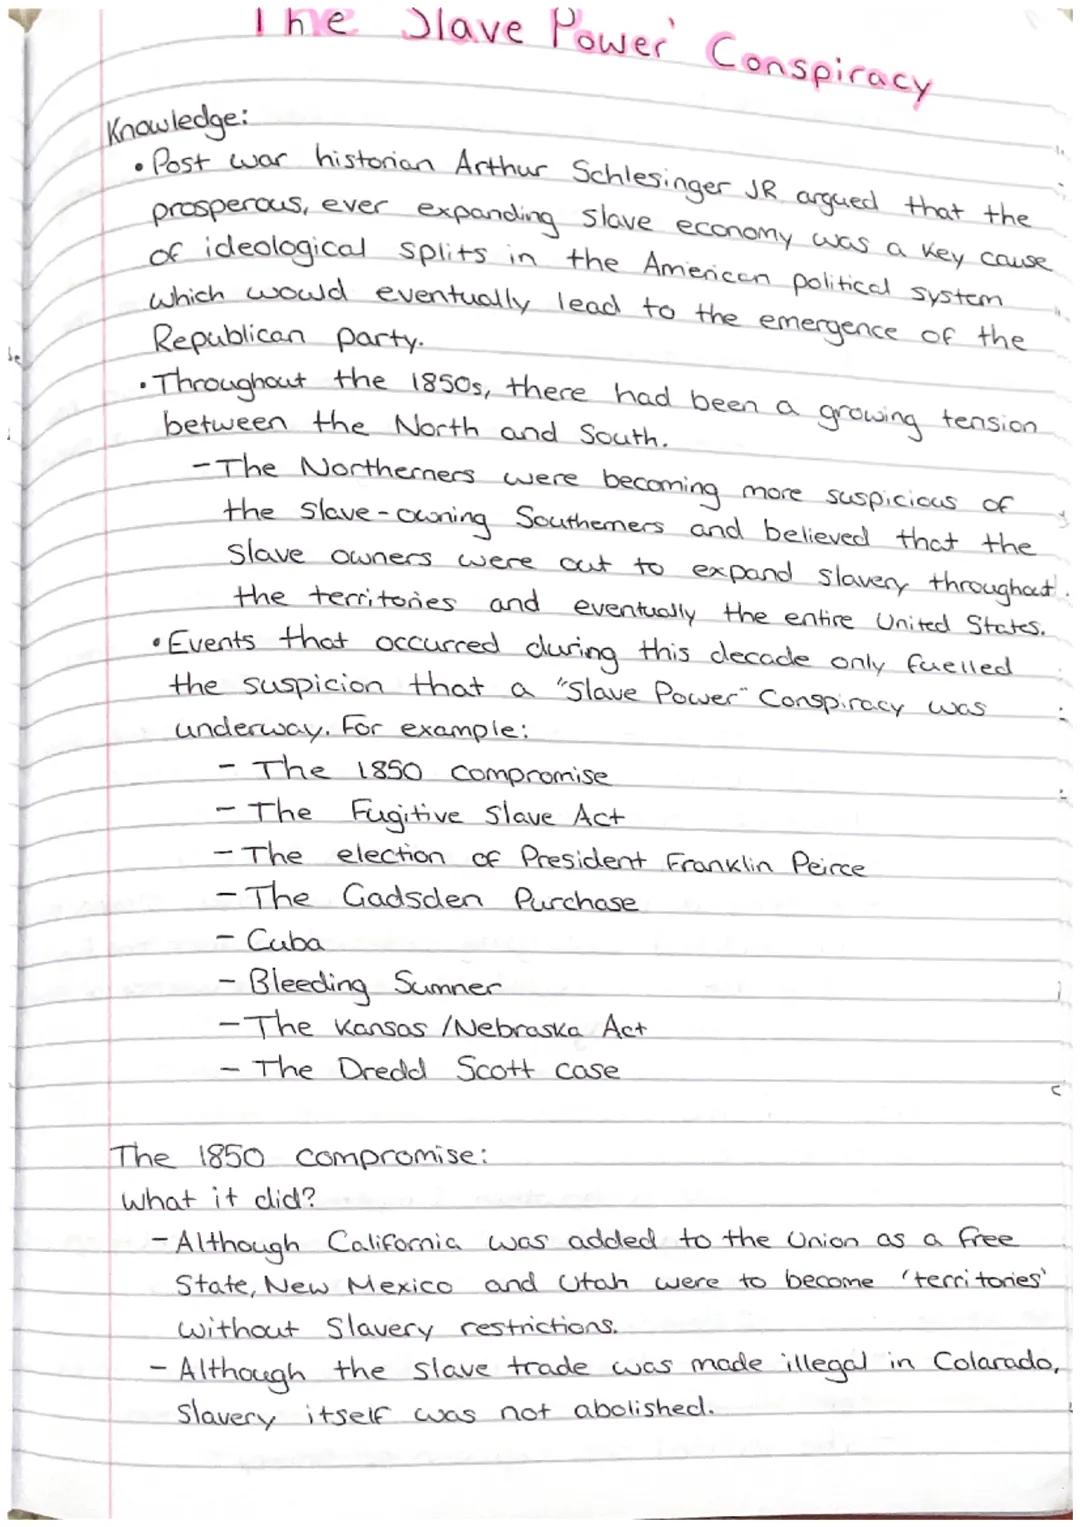 The Slave Power Conspiracy
Knowledge:
• Post war historian Arthur Schlesinger JR argued that the
prosperous, ever expanding slave economy was a key cause
of ideological splits in the American political system
which would eventually lead to the emergence of the
Republican party.
• Throughout the 1850s, there had been a growing tension
between the North and South.
- The Northerners were becoming more suspicious of
the slave-owning Southerners and believed that the
slave owners were out to expand slavery throughout
the territories and eventually the entire United States.
• Events that occurred during this decade only fuelled
the suspicion that a "Slave Power" Conspiracy was
underway. For example:
- The 1850 compromise
- The Fugitive Slave Act
- The election of President Franklin Peirce
- The Gadsden Purchase
- Cuba
- Bleeding Sumner
- The Kansas/Nebraska Act
- The Dredd Scott case
The 1850 compromise:
What it did?
- Although California was added to the Union as a free
State, New Mexico and Utah were to become 'territories'
without Slavery restrictions.
- Although the slave trade was made illegal in Colarado,
Slavery itself was not abolished.